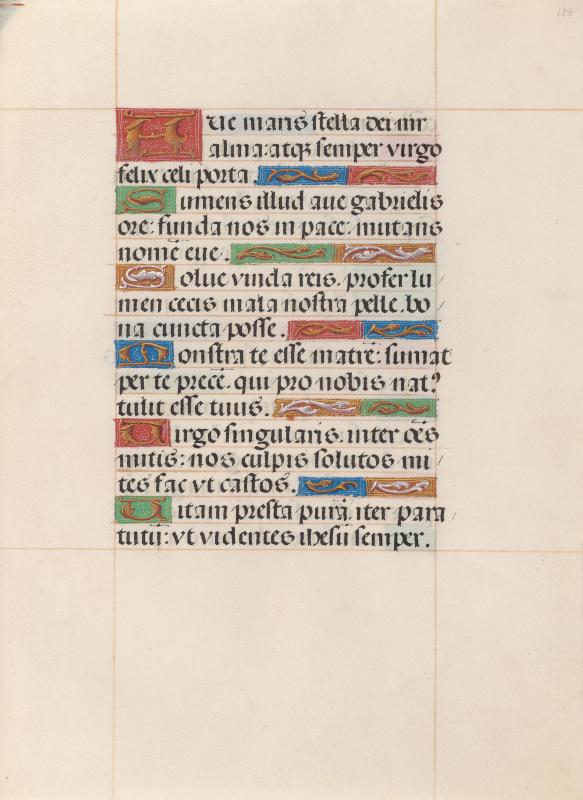 Ave maris stella dei mr̄
alma: atq; semper virgo
felix celi porta.
Sumens illud aue gabrielis
ore: funda nos in pace: mutans
nomē eue.
Solue vincla reis. profer lu
men cecis mala nostra pelle. bo
na cuncta posse.
Monstra te esse matrē: sumat
per te precē. qui pro nobis nat9
tulit esse tuus.
Virgo singularis. inter oēs
mitis: nos culpis solutos mi
tes fac vt castos.
Vitam presta purā iter para
tutū: vt videntes ihesū semper.